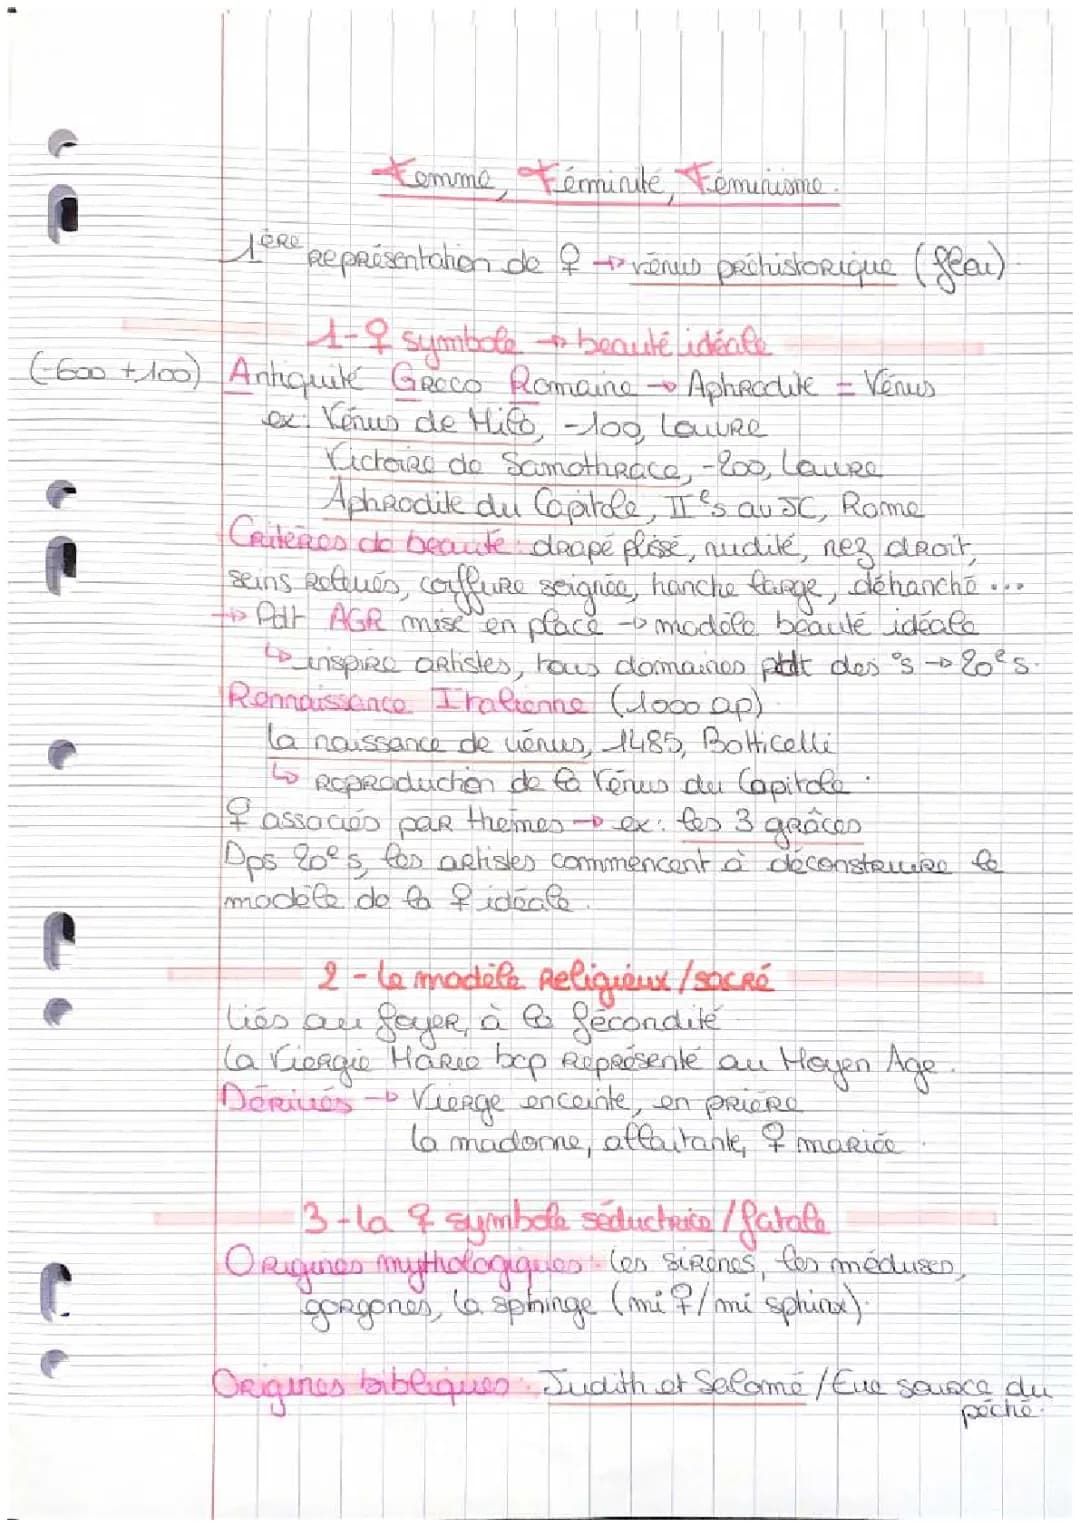 Femme, Féminité, Féminisme.
1ÈRE REPRÉSENTATION de ♀ → vénus préhistorique (fléau)
1-♀ symbole → beauté idéale
(-600 +100) Antiquité Greco Romaine → Aphrodite = Vénus
ex: Vénus de Milo, -100, Louvre
Victoire de Samothrace, -200, Louvre
Aphrodite du Capitole, IIe s av JC, Rome
Critères de beauté: drapé plissé, nudité, nez droit,
seins, coiffure seignée, hanche large, déhanché ...
→ Pdt AGR mise en place → modèle beauté idéale
↳ inspire artistes, tous domaines pdt des °s → 20e s.
Rennaissance Italienne (1000 ap)
la naissance de vénus, 1485, Botticelli
↳ reproduction de la Vénus du Capitole.
♀ associés par themes → ex: les 3 grâces
Dps 20e s, les artistes commencent à déconstruire le
modèle de la ♀ idéale.
2 - le modèle religieux / sacré
liés au foyer, à la fécondité
la Viergie Marie bcp représenté au Moyen Age.
Dérivés → Vierge enceinte, en prière
la madonne, allaitante, ♀ mariée.
3-la ♀ symbole séductrice / fatale
Origines mythologiques: les sirènes, les méduses,
gorgones, la sphinge (mi ♀/mi sphinx).
Origines bibliques: Judith et Salomé / Eve source du
péché.